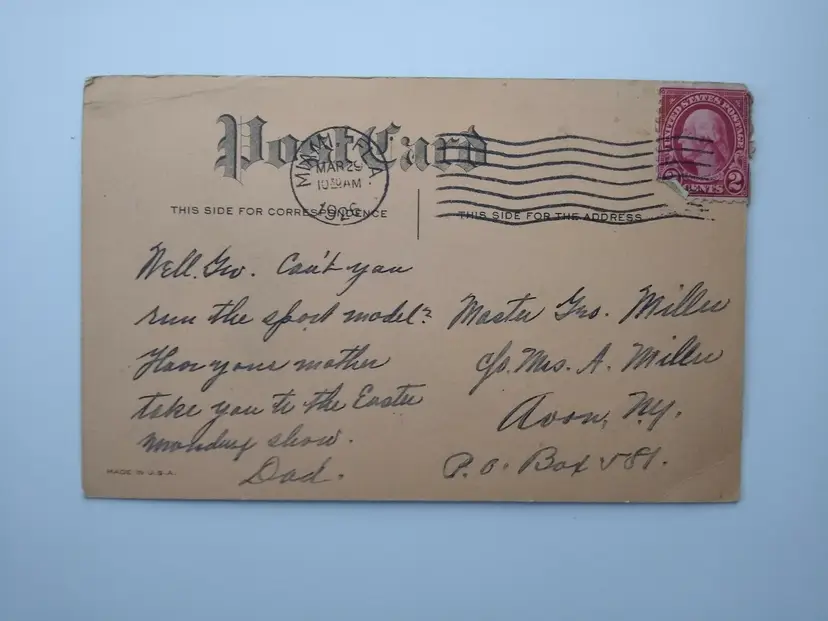 Post Card
MIAMI, FLA
MAR 29
10 AM
1926
UNITED STATES POSTAGE
CENTS 2
THIS SIDE FOR CORRESPONDENCE
THIS SIDE FOR THE ADDRESS
Well. Geo. Can't you
run the sport model?
Have your mother
take you to the Easter
monday show.
Dad.
Master Geo. Miller
c/o. Mrs. A. Miller
Avon, N.Y.
P.O. Box 581.
MADE IN U.S.A.